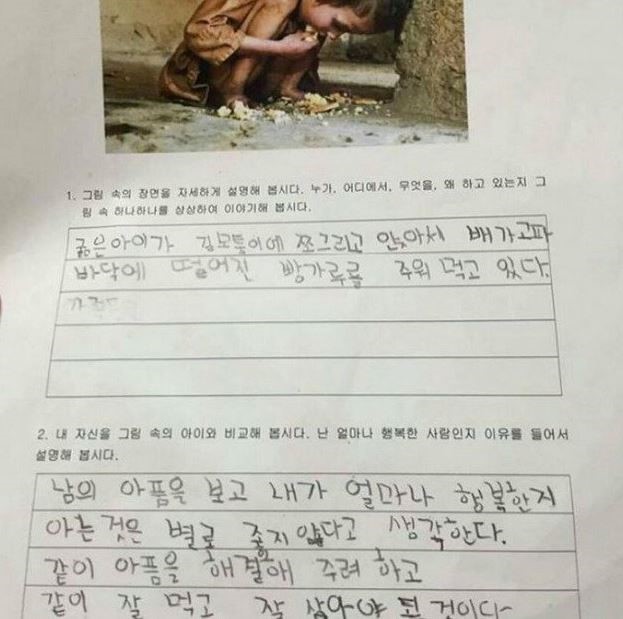 1. 그림 속의 장면을 자세하게 설명해 봅시다. 누가, 어디에서, 무엇을, 왜 하고 있는지 그
림 속 하나하나를 상상하여 이야기해 봅시다.
굶은아이가 길모퉁이에 쪼그리고 앉아서 배가고파
바닥에 떨어진 빵가루를 주워 먹고 있다.
2. 내 자신을 그림 속의 아이와 비교해 봅시다. 난 얼마나 행복한 사람인지 이유를 들어서
설명해 봅시다.
남의 아픔을 보고 내가 얼마나 행복한지
아는 것은 별로 좋지 않다고 생각한다.
같이 아픔을 해결해 주려 하고
같이 잘 먹고 잘 살아야 된 것이다